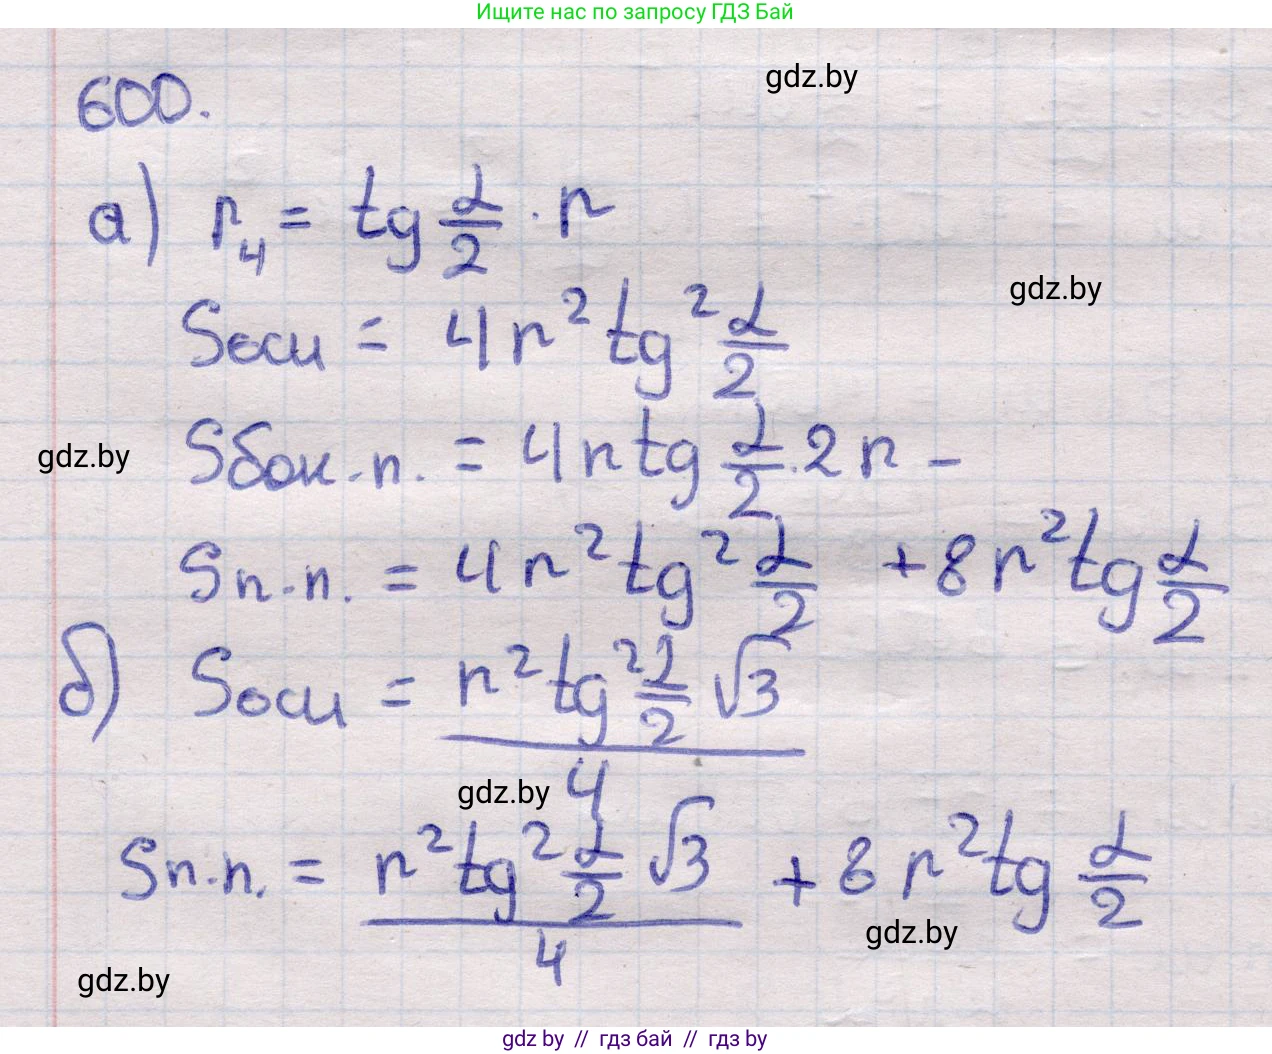 Ищите нас по запросу ГДЗ Бай
600.
gdz.by
а) r₄ = tg α/2 · r
gdz.by
Sосн = 4r² tg² α/2
gdz.by
Sбок.п. = 4r tg α/2 · 2r -
Sп.п. = 4r² tg² α/2 + 8r² tg α/2
б) Sосн = r² tg² α/2 √3 / 4
gdz.by
Sп.п. = r² tg² α/2 √3 / 4 + 8 r² tg α/2
gdz.by
gdz.by
gdz by // гдз бай // гдз by